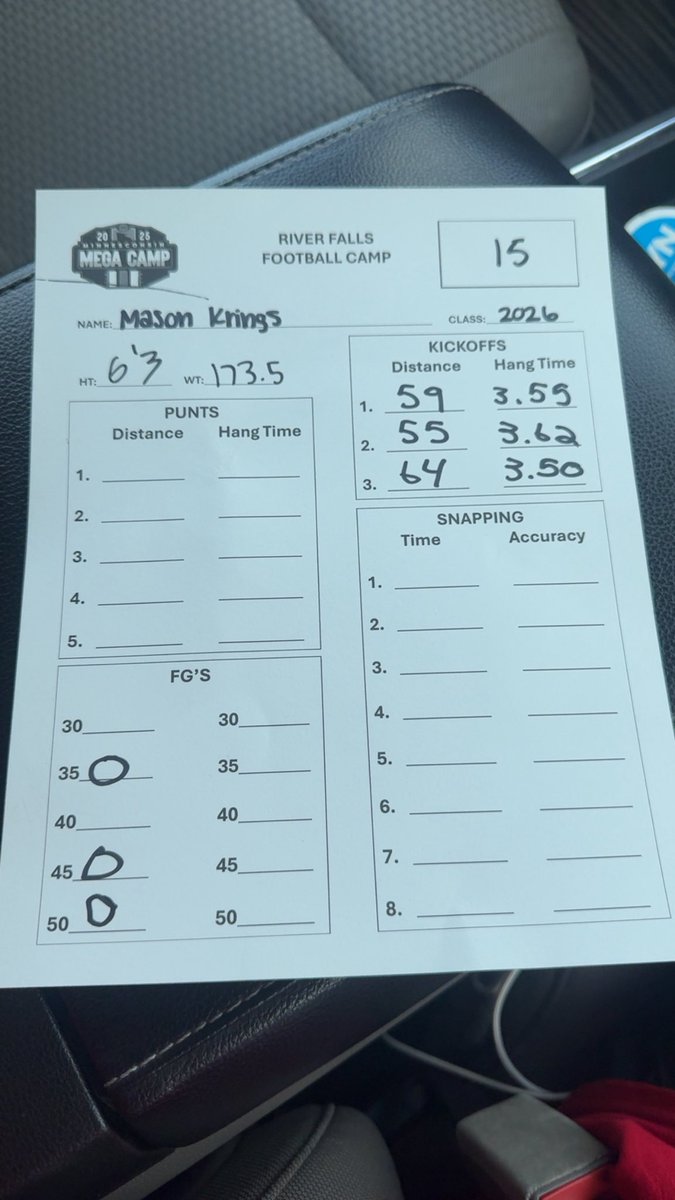 2025
MINNESCONSIN
MEGA CAMP
RIVER FALLS
FOOTBALL CAMP
15
NAME: Mason Krings
CLASS: 2026
HT: 6'3 WT: 173.5
KICKOFFS
Distance Hang Time
1. 59 3.55
2. 55 3.62
3. 64 3.50
PUNTS
Distance Hang Time
1.
2.
3.
4.
5.
SNAPPING
Time Accuracy
1.
2.
3.
4.
5.
6.
7.
8.
FG'S
30 30
35 O 35
40 40
45 O 45
50 O 50